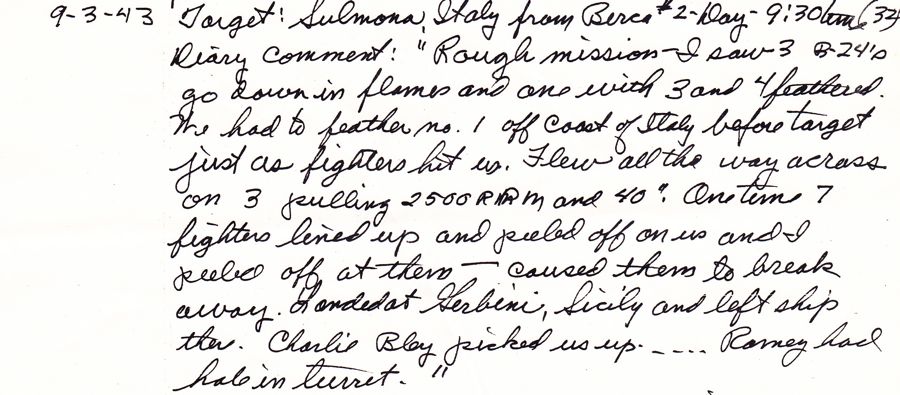 9-3-43 Target: Sulmona, Italy from Berca #2-Day-9:30 time (32)
Diary Comment: "Rough mission-I saw 3 B-24's
go down in flames and one with 3 and 4 feathered.
We had to feather no. 1 off coast of Italy before target
just as fighters hit us. Flew all the way across
on 3 pulling 2500 RPM and 40". One time 7
fighters lined up and peeled off on us and I
peeled off at them — caused them to break
away. Landed at Gerbini, Sicily and left ship
there. Charlie Bley picked us up. ---- Ramey had
hole in turret."